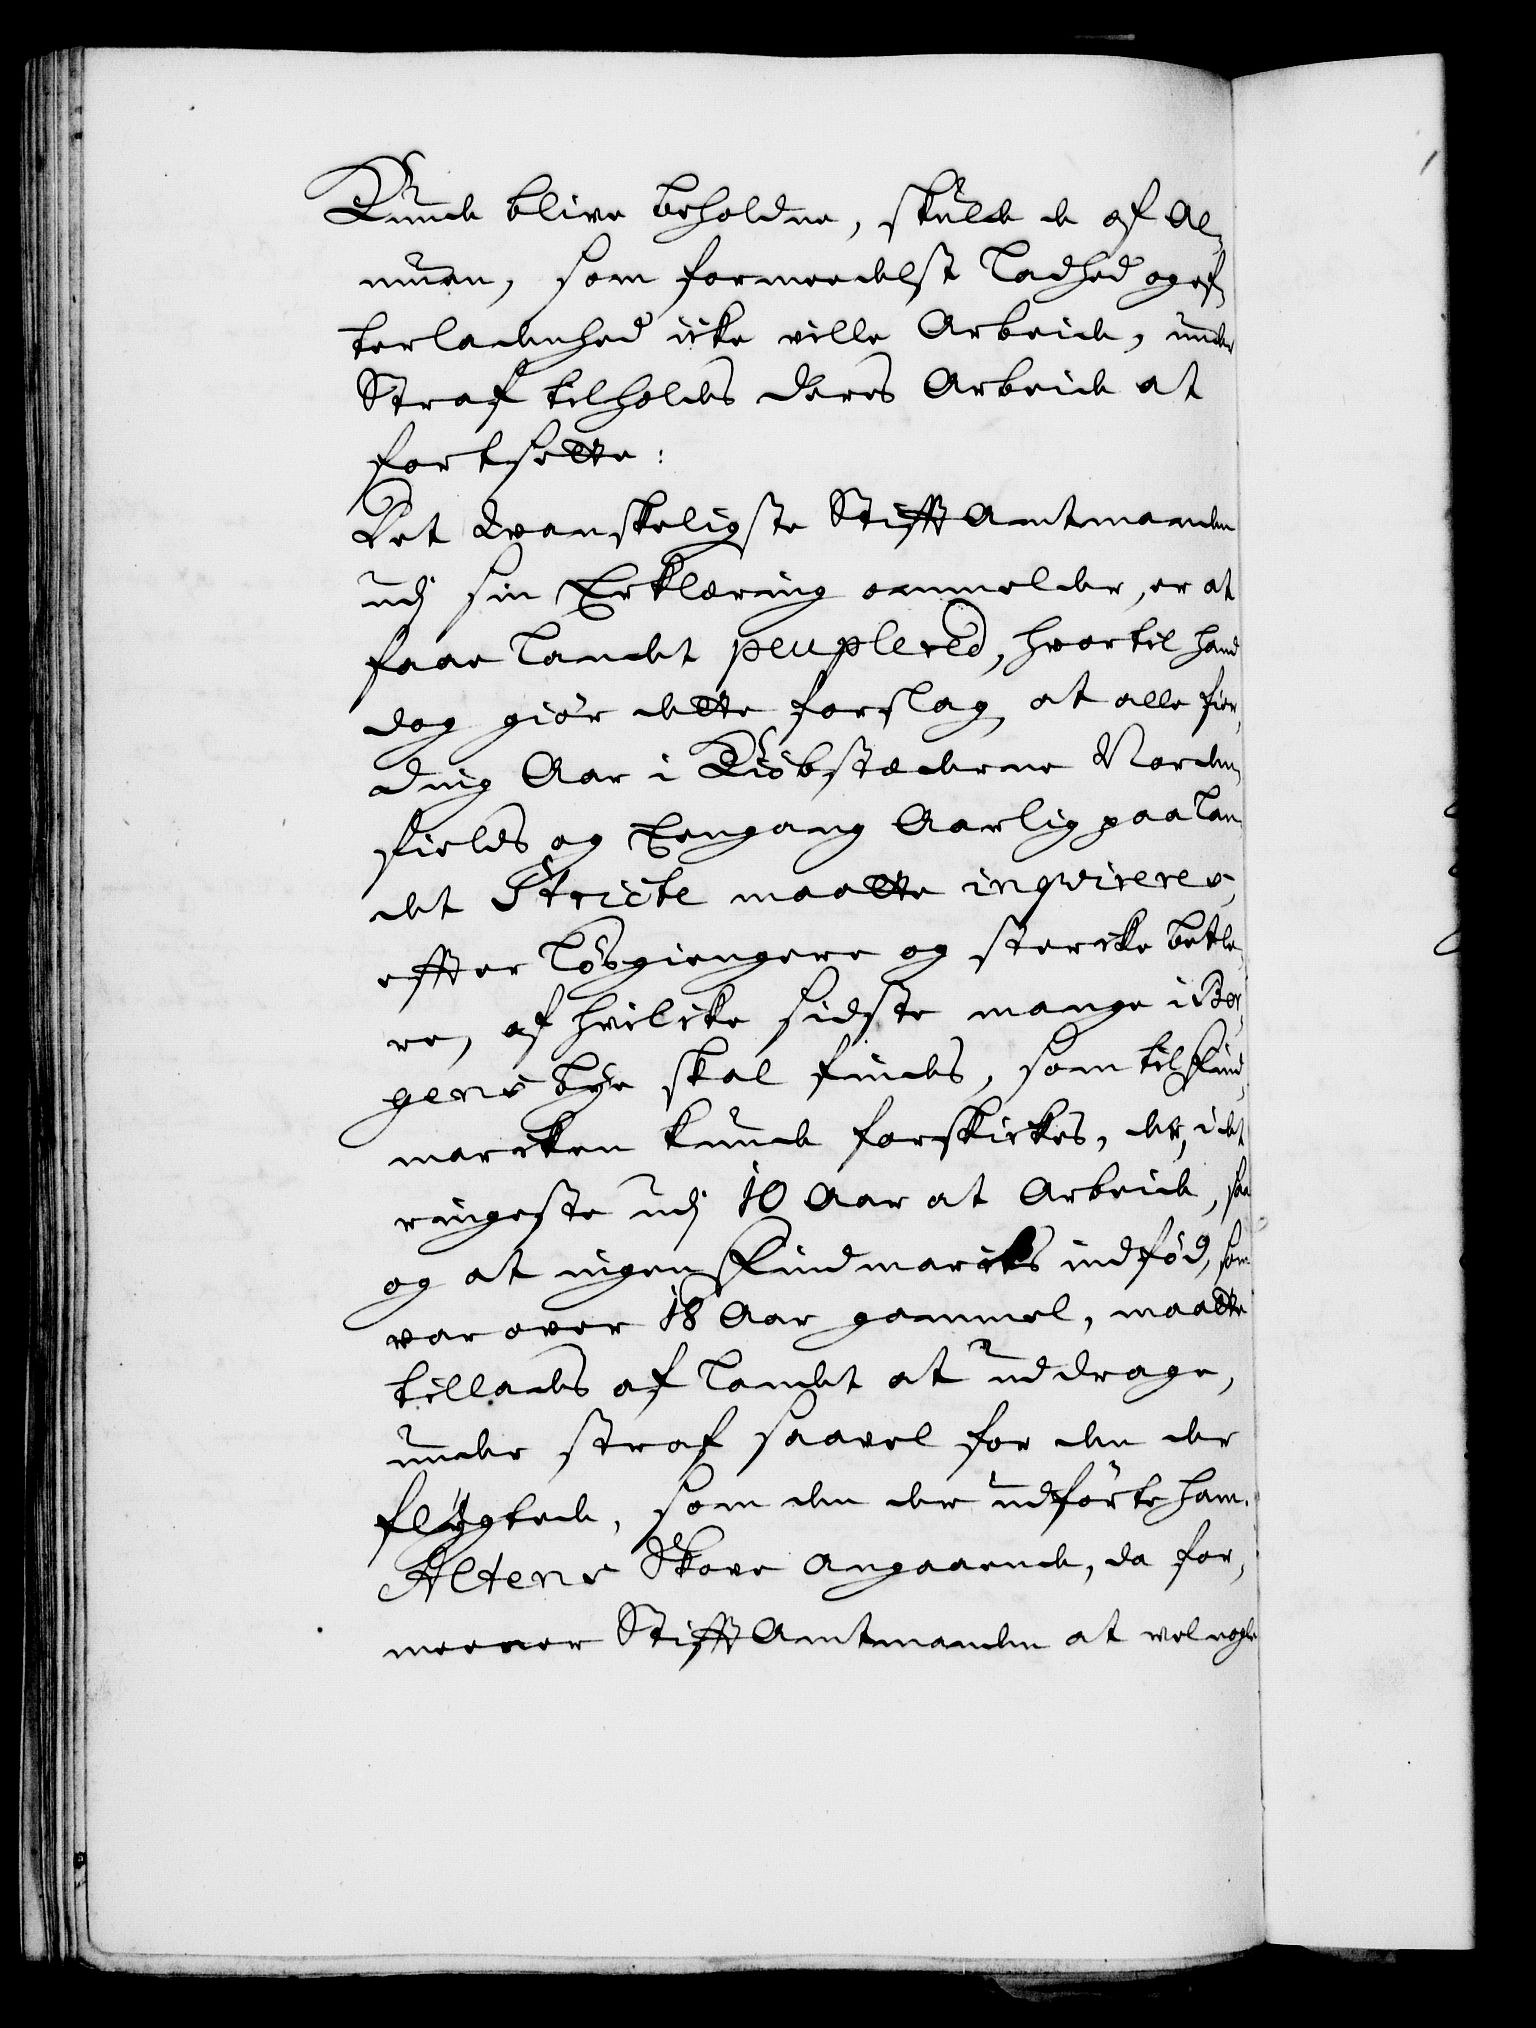 Kunde blive beholdne, skulde de af Al-
muen, som formedelst Ladhed og ef-
terladenhed icke ville Arbeide, under
Straf tilholdes deres Arbeide at
fortsette:
Det Vanskeligste Stifft Amtmanden
udj sin Erklæring ommelder, er at
faae Landet peuplered, hvortil hand
dog giør dette forslag, at alle fier-
ding Aar i Kiøbstæderne Norden-
fields og Eengang Aarlig paa Lan-
det Stricte maatte inqvireres,
effter Løsgiengere og stercke betle-
re, af hvilcke sidste mange i Ber-
gens bye skal findes, som til Find-
marcken kunde forskickes, der, i det
ringeste udj 10 Aar at Arbeide, saa
og at ingen Findmarcks indfød, som
var over 18 Aar gammel, maatte
tillades af Landet at uddrage,
under straf saavel for den der
flÿgtede, som den der udførte ham.
Altens Skove Angaaende, da for-
meener Stifft Amtmanden at vel nogle